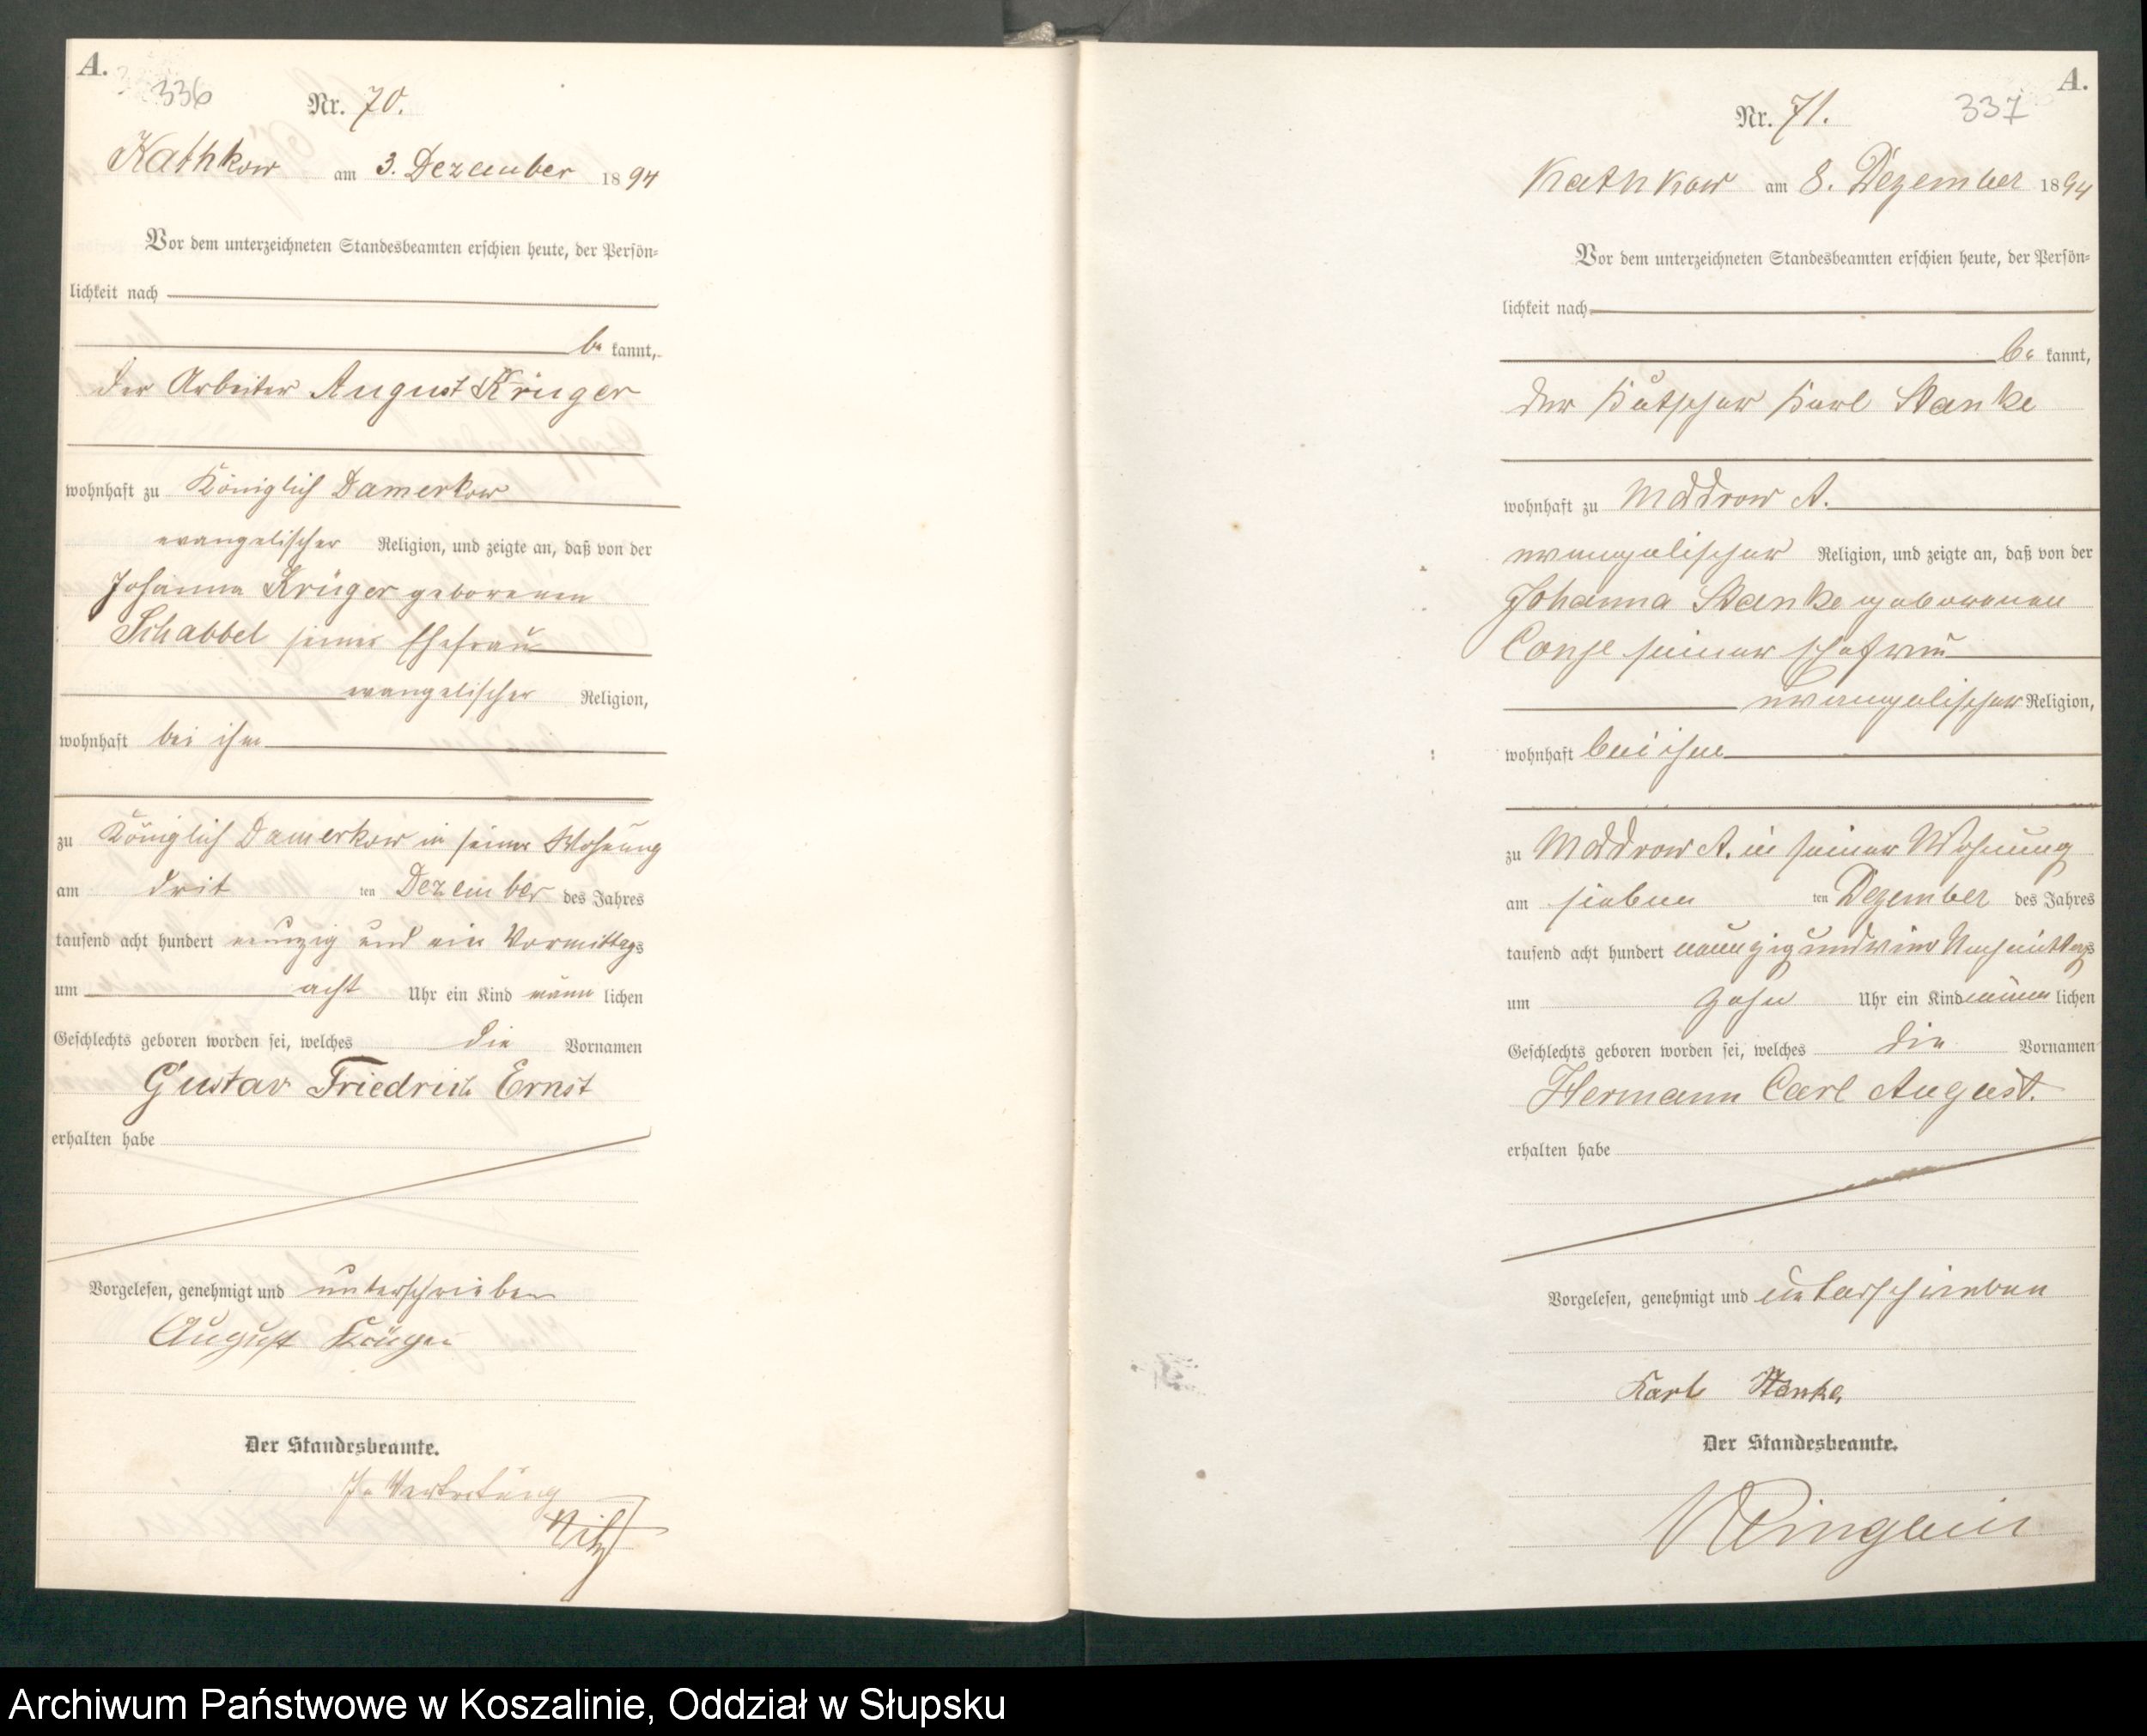 A.
336
Nr. 70.
Kathkow am 3. Dezember 1894
Vor dem unterzeichneten Standesbeamten erschien heute, der Persön-
lichkeit nach
be kannt,
der Arbeiter August Krüger
wohnhaft zu Königlich Damerkow
evangelischer Religion, und zeigte an, daß von der
Johanna Krüger geborenen
Schabbel seiner Ehefrau
evangelischer Religion,
wohnhaft bei ihm
zu Königlich Damerkow in seiner Wohnung
am drit ten Dezember des Jahres
tausend acht hundert neunzig und vier Vormittags
um acht Uhr ein Kind männ lichen
Geschlechts geboren worden sei, welches die Vornamen
Gustav Friedrich Ernst
erhalten habe
Vorgelesen, genehmigt und unterschrieben
August Krüger
Der Standesbeamte.
In Vertretung
A.
337
Nr. 71.
Kathkow am 8. Dezember 1894
Vor dem unterzeichneten Standesbeamten erschien heute, der Persön-
lichkeit nach
be kannt,
der Karl Stanke
wohnhaft zu Moddrow A.
evangelischer Religion, und zeigte an, daß von der
Johanna Stanke geborenen
seiner Ehefrau
evangelischer Religion,
wohnhaft bei ihm
zu Moddrow A. in seiner Wohnung
am sieben ten Dezember des Jahres
tausend acht hundert neunzig und vier Nachmittags
um zehn Uhr ein Kind männ lichen
Geschlechts geboren worden sei, welches die Vornamen
Hermann Carl August.
erhalten habe
Vorgelesen, genehmigt und unterschrieben
Karl Stanke
Der Standesbeamte.
Archiwum Państwowe w Koszalinie, Oddział w Słupsku